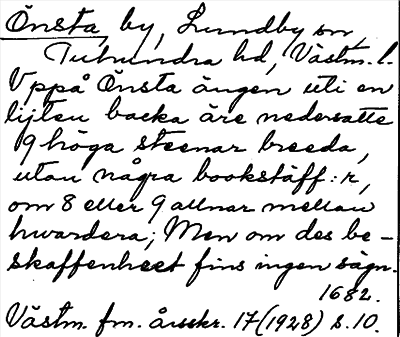 Önsta by, Lundby sn,
Tuhundra hd, Västm. l.
Uppå Önsta ängen uti en
lijten backa äre nedersatte
9 höga steenar breeda,
utan några bookstäff:r,
om 8 eller 9 allnar mellan
hwardera; Men om des be-
skaffenheet fins ingen sägn.
1682.
Västm. fm. årsskr. 17 (1928) s. 10.